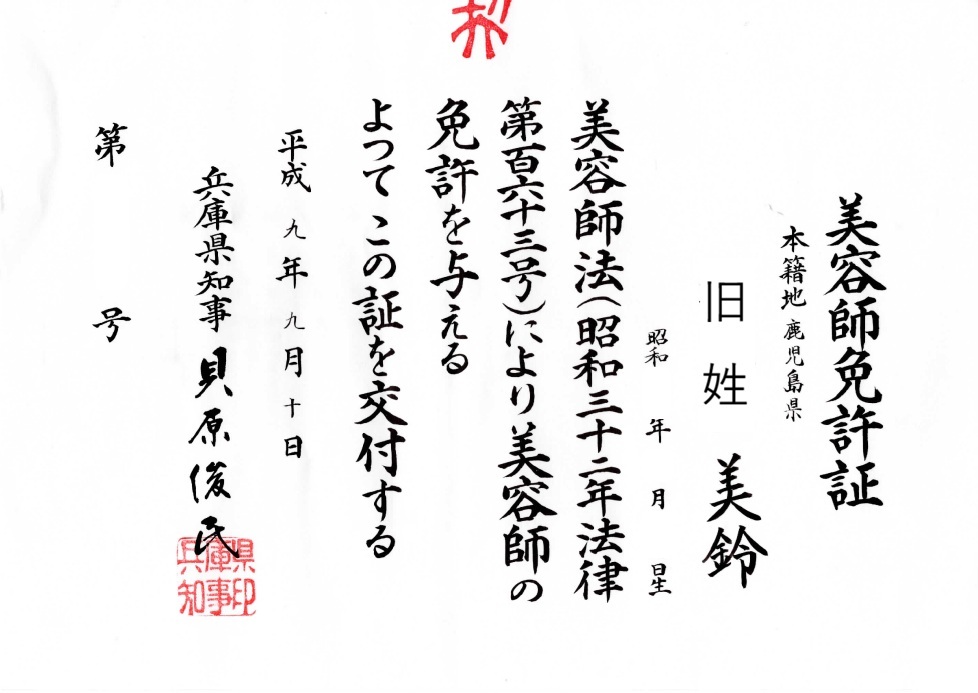 美容師免許証
本籍地 鹿児島県
旧姓 美鈴
昭和 年 月 日生
美容師法(昭和三十二年法律
第百六十三号)により美容師の
免許を与える
よつてこの証を交付する
平成九年九月十日
兵庫県知事 貝原俊民
兵庫県
知事印
第 号